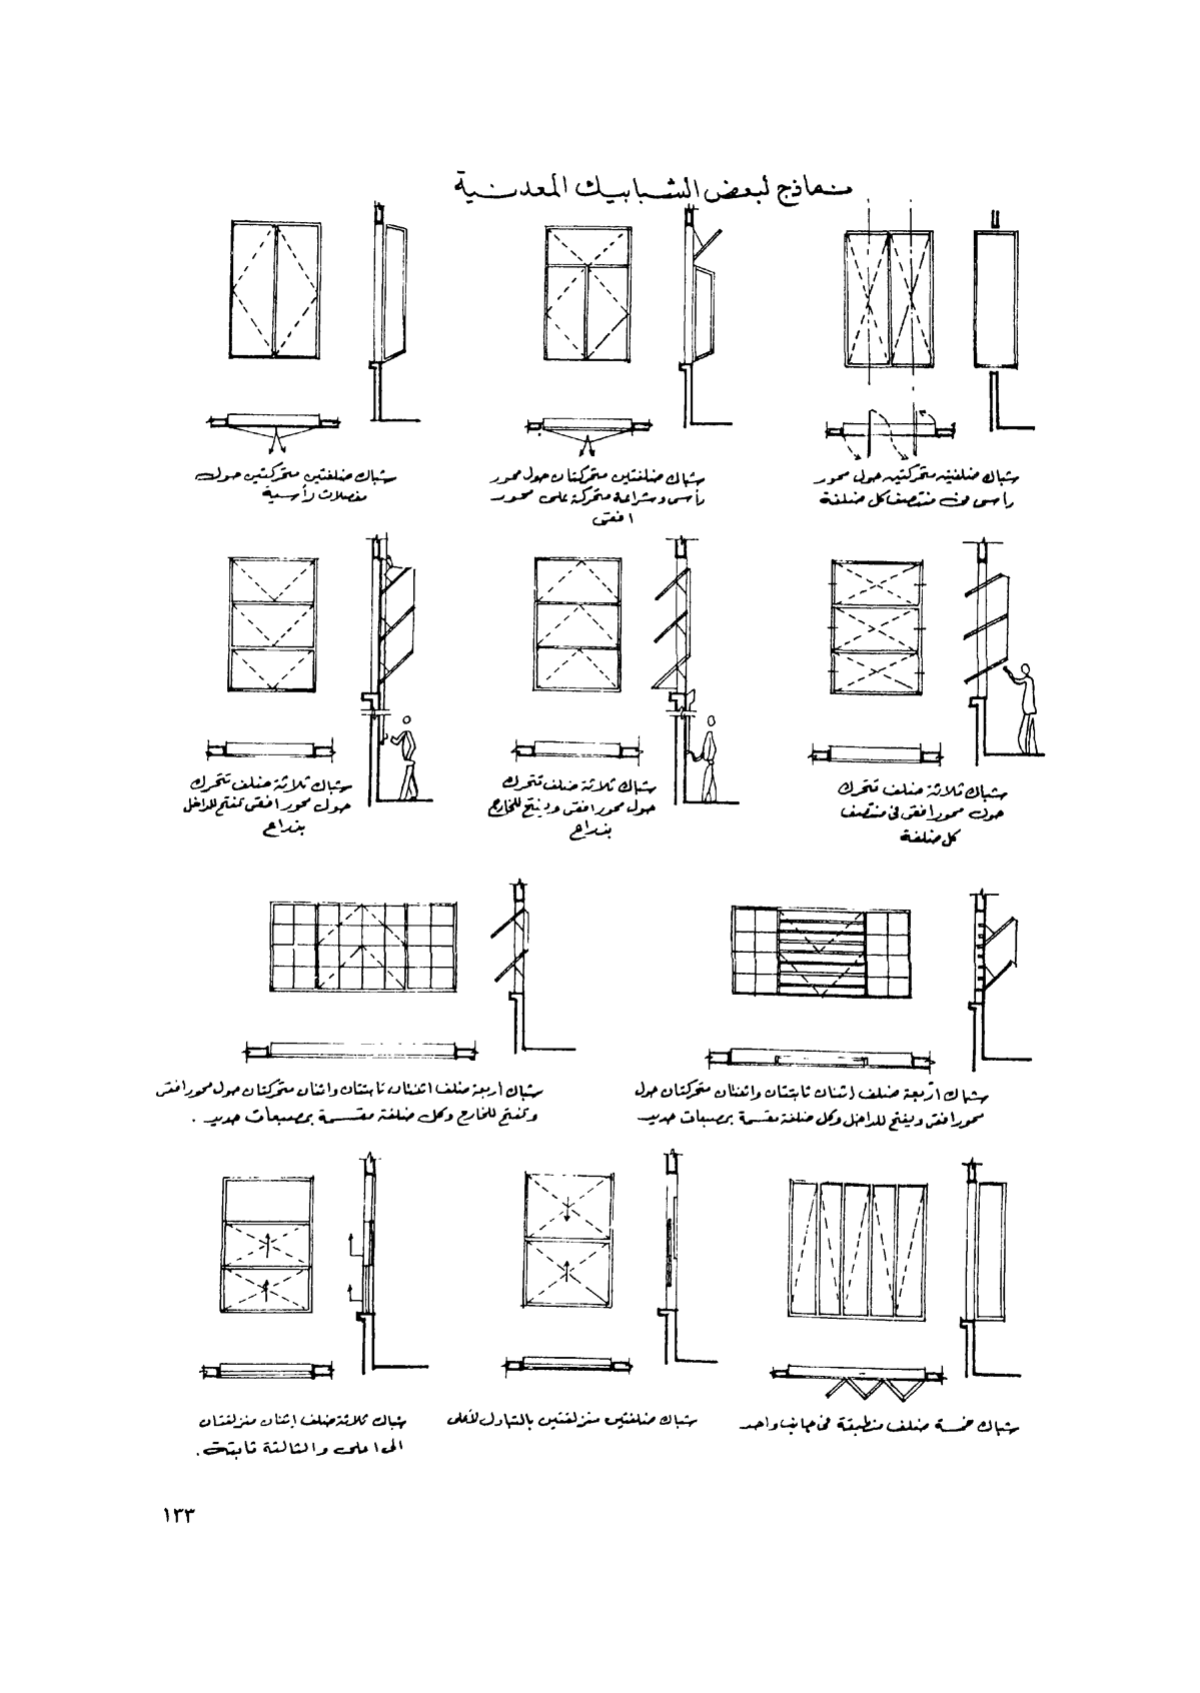 نماذج لبعض الشبابيك المعدنية
شباك ضلفتين متحركتين حول محور
رأسى فى منتصف كل ضلفة
شباك ضلفتين متحركتان حول محور
رأسى وشراعة متحركة على محور
افقى
شباك ضلفتين متحركتين حول
مفصلات رأسية
شباك ثلاثة ضلف تتحرك
حول محور افقى فى منتصف
كل ضلفة
شباك ثلاثة ضلف تتحرك
حول محور افقى ويفتح للخارج
بذراع
شباك ثلاثة ضلف تتحرك
حول محور افقى تفتح للداخل
بذراع
شباك أربعة ضلف إثنان ثابتتان واثنتان متحركتان حول
محور افقى ويفتح للداخل وكل ضلفة مقسمة بمصبعات حديد
شباك أربعة ضلف اثنتان ثابتتان واثنان متحركتان حول محور افقى
وتفتح للخارج وكل ضلفة مقسمة بمصبعات حديد .
شباك خمسة ضلف منطبقة فى جانب واحد
شباك ضلفتين منزلقتين بالتبادل لأعلى
شباك ثلاثة ضلف إثنان منزلقتان
الى اعلى والثالثة ثابتة .
١٣٣